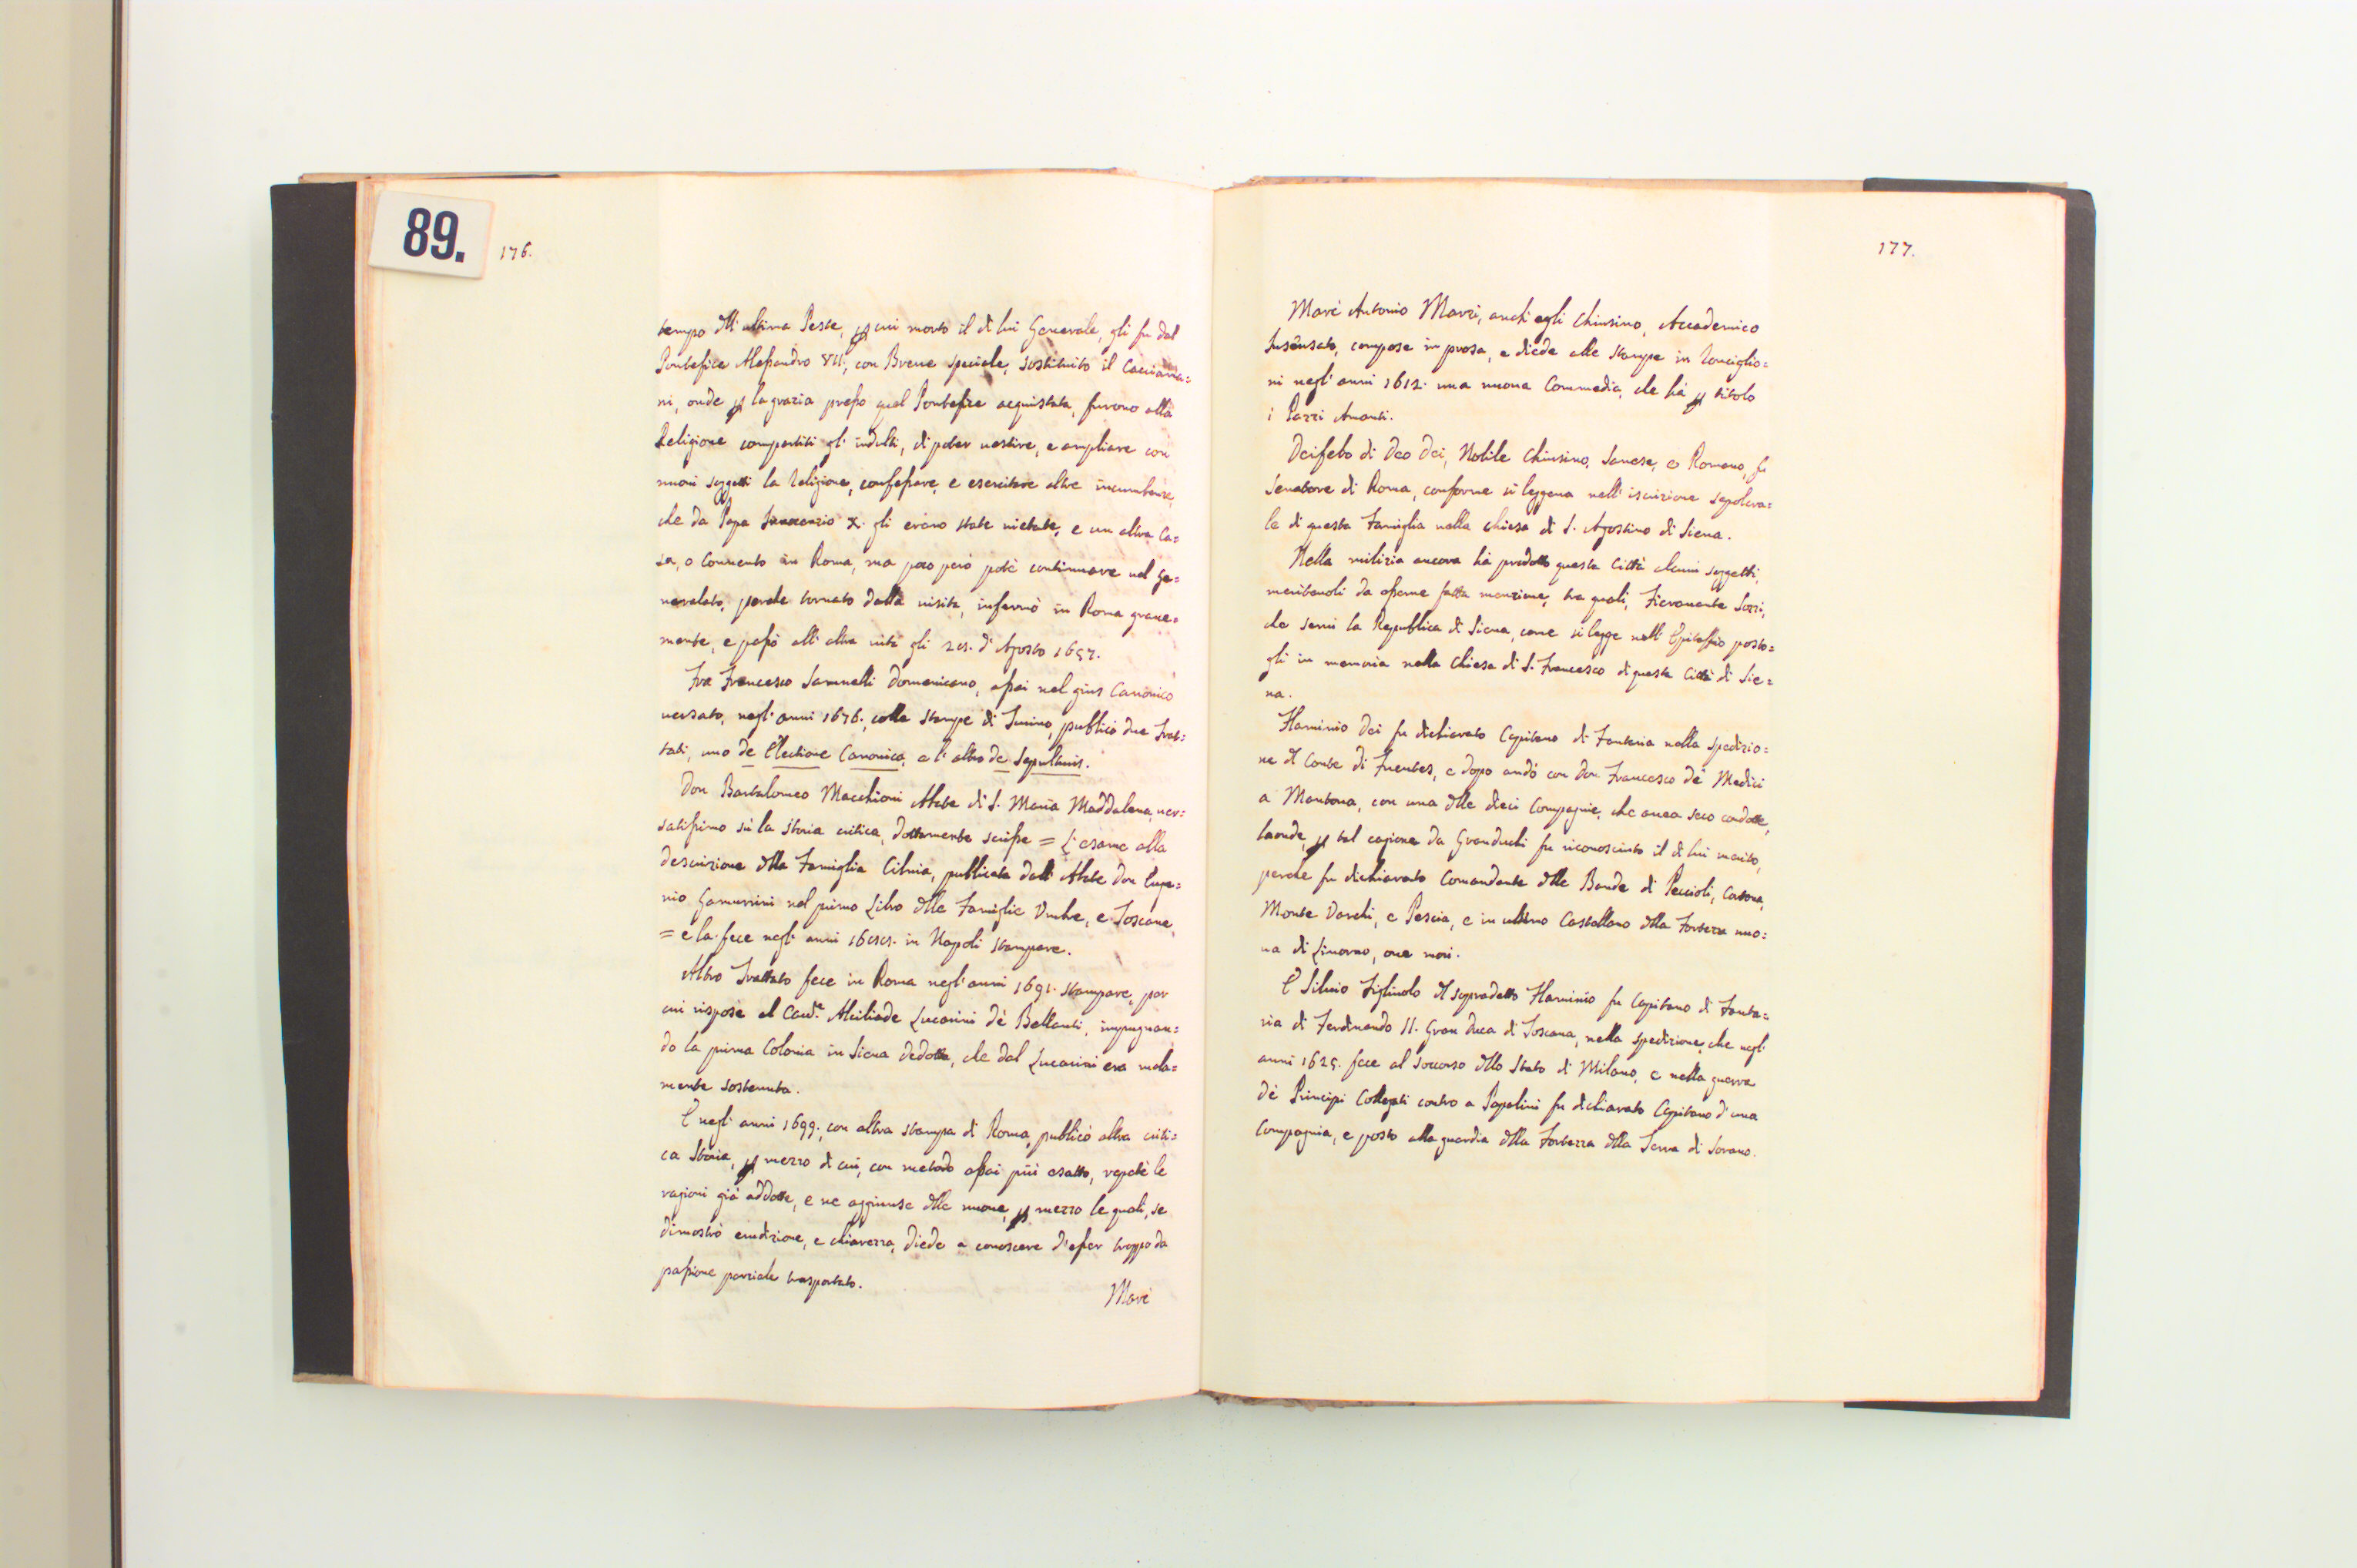 89.
176.
tempo dell'ultima Peste, per cui morto il di lui Generale, gli fu dal
Pontefice Alessandro VII, con Breve speciale, sostituito il Cacciama=
ni, onde per la grazia presso quel Pontefice acquistata, furono alla
Religione compartiti gl'indulti, di poter vestire, e ampliare con
nuovi soggetti la Religione, confessare, e esercitare altre incumbenze
che da Papa Innocenzio X. gli erano state vietate, e un altra Ca=
sa, o Convento in Roma, ma poco però potè continuare nel Ge=
neralato, perche tornato dalla visita, infermò in Roma grave=
mente, e passò all'altra vita gli di Agosto 1657.
Fra Francesco Domenicano, assai nel gius Canonico
versato, negl'anni 1676. colle stampe di publicò due Trat=
tati, uno de Electione Canonica, e l'altro de Sepulturis.
Don Bartalomeo Macchioni Abate di S. Maria Maddalena, ver=
satissimo sù la storia critica, dottamente scrisse = L'esame alla
descrizione della Famiglia Cilnia, publicata dall'Abate Don Euge=
nio Gamurrini nel primo Libro delle Famiglie Umbre, e Toscane,
= e la fece negl'anni in Napoli stampare.
Altro Trattato fece in Roma negl'anni 1691. stampare, per
cui rispose al Cav.re Alcibiade Lucarini dè Bellanti, impugnan=
do la prima Colonia in Siena dedotta, che dal Lucarini era mala=
mente sostenuta.
E negl'anni 1699. con altra stampa di Roma, publicò altra criti=
ca Storia, per mezzo di cui, con metodo assai più esatto, repetè le
ragioni già addotte, e ne aggiunse delle nuove, per mezzo le quali, se
dimostrò erudizione, e chiarezza, diede a conoscere d'esser troppo da
passione parziale trasportato.
Marc'
177.
Marc'Antonio Marzi, anch'egli Chiusino, Accademico
Insensato, compose in prosa, e diede alle stampe in Ronciglio=
ni negl'anni 1612. una nuova Commedia, che hà per titolo
i Pazzi Amanti.
Deifebo di Deo Dei, Nobile Chiusino, Sanese, e Romano, fu
Senatore di Roma, conforme si leggeva nell'iscrizione sepolcra=
le di questa Famiglia nella Chiesa di S. Agostino di Siena.
Nella milizia ancora hà prodotto questa Città alcuni soggetti,
meritevoli da esserne fatta menzione, tra quali, Fieramonte Sozzi,
che servì la Republica di Siena, come si legge nell'Epitaffio posto=
gli in memoria nella Chiesa di S. Francesco di questa Città di Sie=
na.
Flaminio Dei fu dichiarato Capitano di Fanteria nella spedizio=
ne del Conte di Fuentes, e dopo andò con Don Francesco dè Medici
a Mantova, con una delle dieci Compagnie, che avea seco condotte,
laonde, per tal cagione da Granduchi fu riconosciuto il di lui merito,
perche fu dichiarato Comandante delle Bande di Peccioli, Cascina,
Monte Varchi, e Pescia, e in ultimo Castellano della Fortezza nuo=
va di Livorno, ove morì.
E Silvio Figliuolo del sopradetto Flaminio fu Capitano di Fante=
ria di Ferdinando II. Gran Duca di Toscana, nella spedizione, che negl'
anni 1625. fece al soccorso dello Stato di Milano, e nella guerra
dè Principi Collegati contro a Papalini fu dichiarato Capitano d'una
Compagnia, e posto alla guardia della Fortezza della Terra di Sorano.